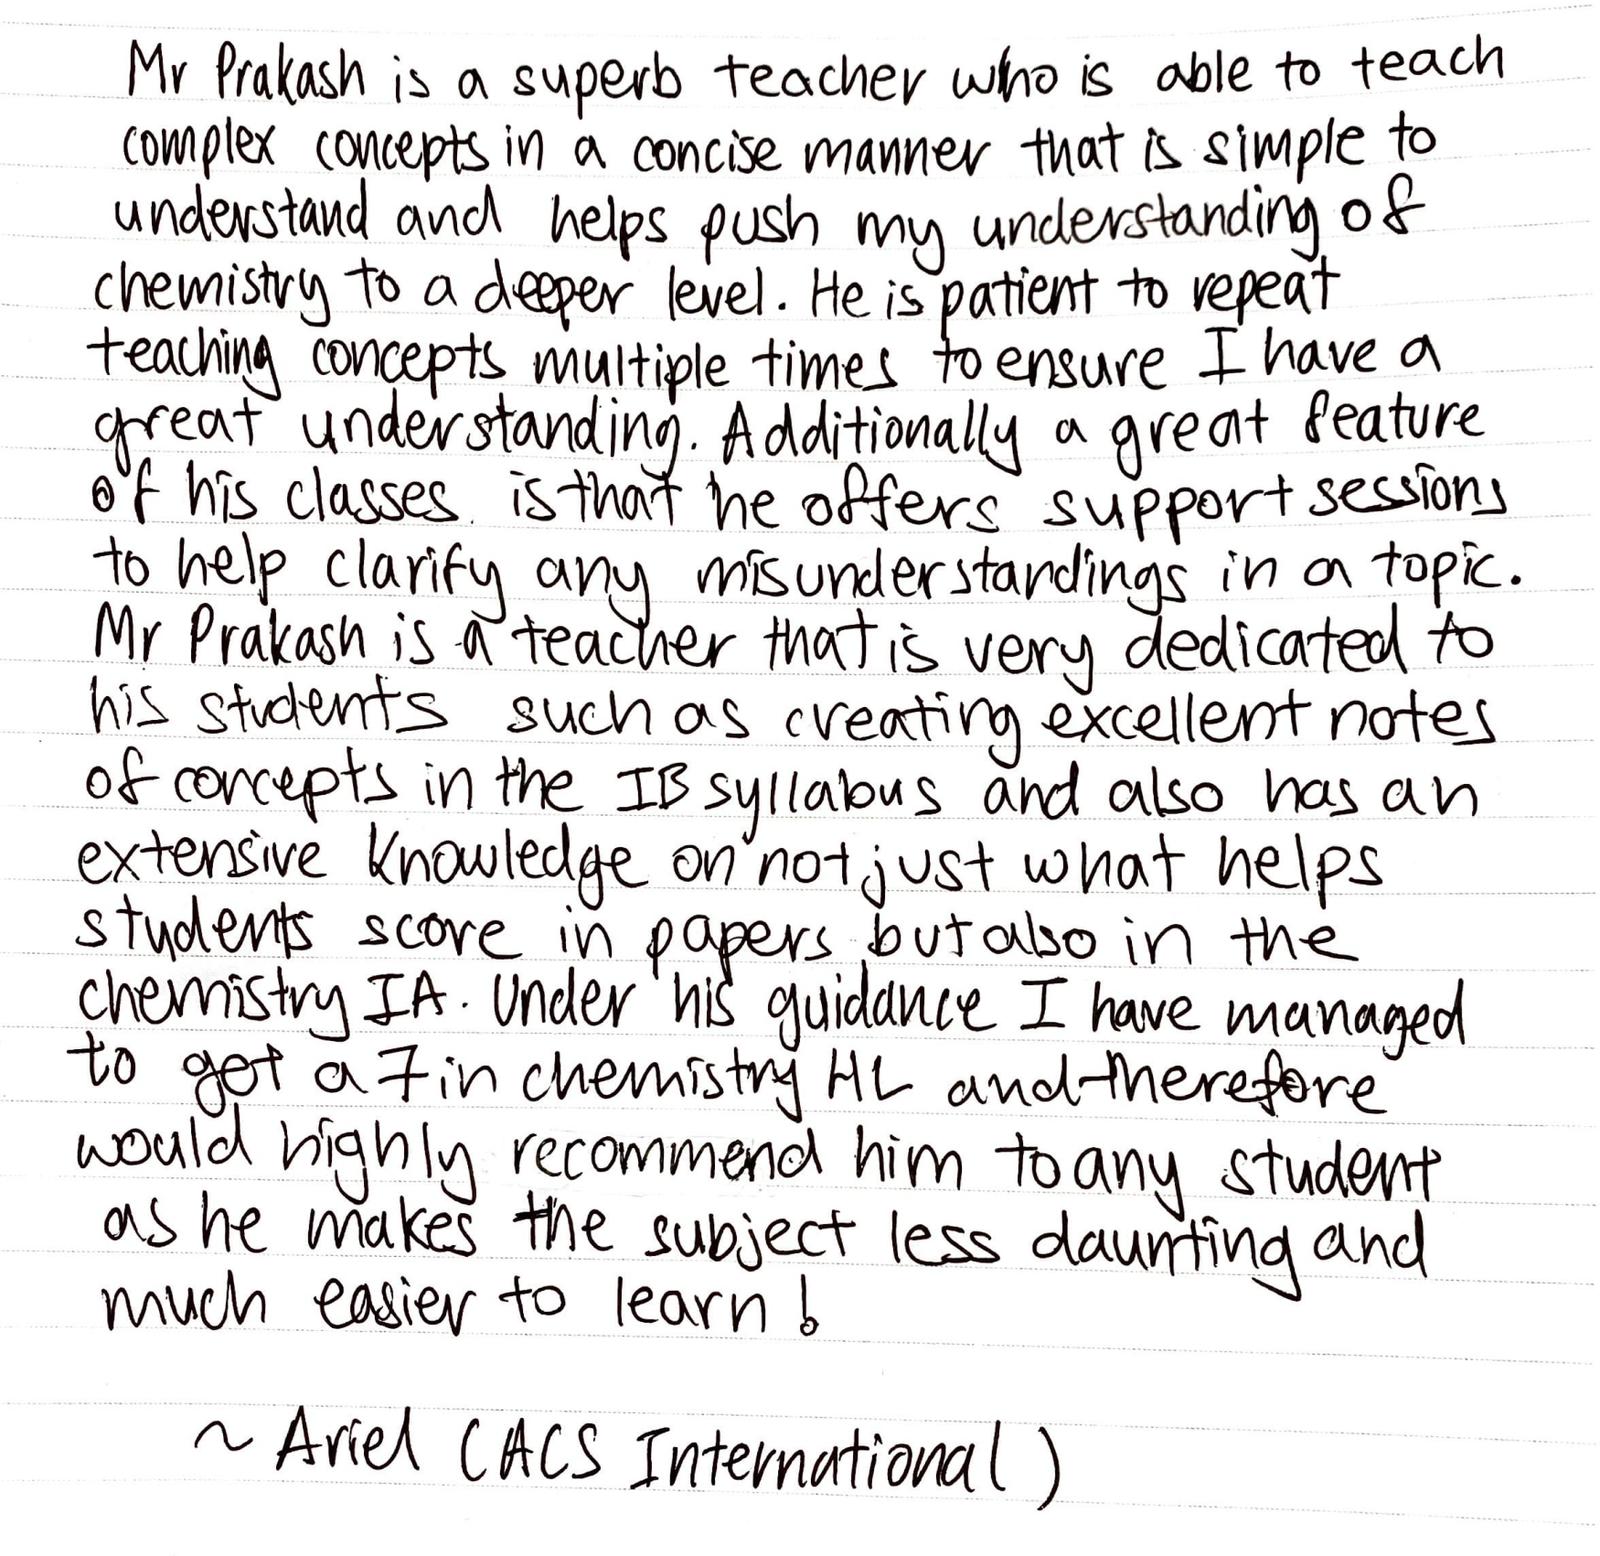 Mr Prakash is a superb teacher who is able to teach
complex concepts in a concise manner that is simple to
understand and helps push my understanding of
chemistry to a deeper level. He is patient to repeat
teaching concepts multiple times to ensure I have a
great understanding. Additionally a great feature
of his classes is that he offers support sessions
to help clarify any misunderstandings in a topic.
Mr Prakash is a teacher that is very dedicated to
his students such as creating excellent notes
of concepts in the IB syllabus and also has an
extensive knowledge on not just what helps
students score in papers but also in the
chemistry IA. Under his guidance I have managed
to get a 7 in chemistry HL and therefore
would highly recommend him to any student
as he makes the subject less daunting and
much easier to learn!
~ Ariel (ACS International)